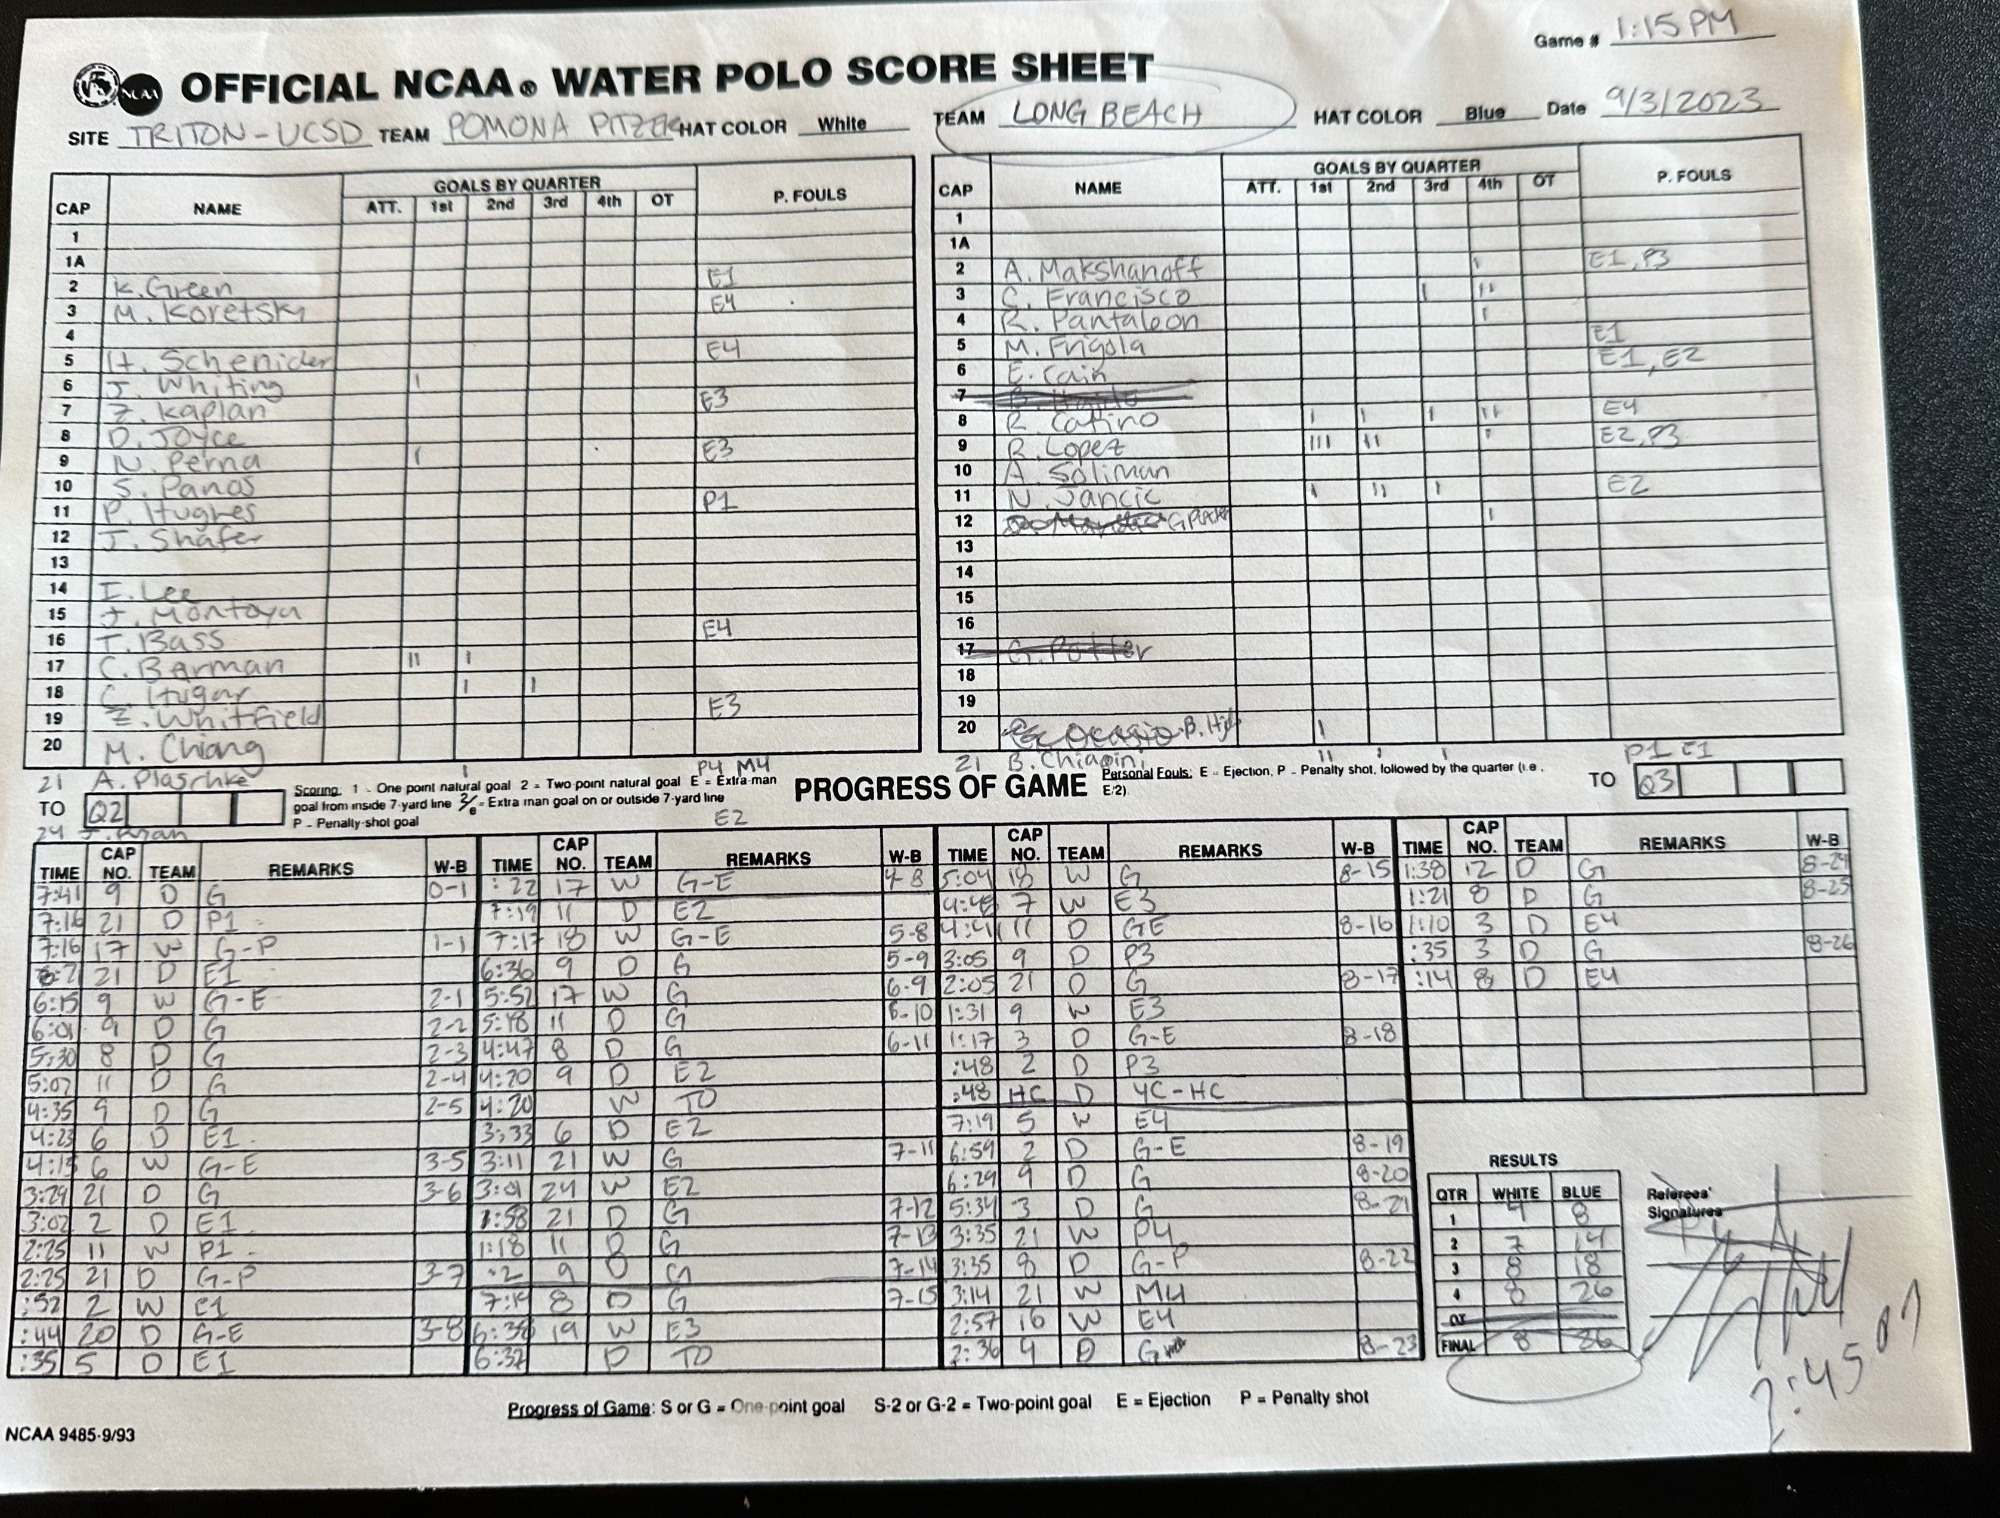 Game # 1:15 PM
OFFICIAL NCAA® WATER POLO SCORE SHEET
SITE TRITON-UCSD TEAM POMONA PITZER HAT COLOR White TEAM LONG BEACH HAT COLOR Blue Date 9/3/2023
CAP NAME GOALS BY QUARTER P. FOULS
ATT. 1st 2nd 3rd 4th OT
1
1A
2 K. Green E1
3 M. Koretsky E4
4
5 H. Schenider E4
6 J. Whiting I
7 Z. Kaplan E3
8 D. Joyce
9 N. Perna I E3
10 S. Panos
11 P. Hughes P1
12 J. Shafer
13
14 E. Lee
15 J. Montoya
16 T. Bass E4
17 C. Berman II I
18 C. Hugar I I
19 Z. Whitfield E3
20 M. Chiang
21 A. Plaschke I P4 M4
24 E2
CAP NAME GOALS BY QUARTER P. FOULS
ATT. 1st 2nd 3rd 4th OT
1
1A
2 A. Makshanoff I E1, P3
3 C. Francisco I II
4 R. Pantaleon I
5 M. Frigola E1
6 E. Cain E1, E2
7
8 R. Catino I I I II E4
9 R. Lopez III II I E2, P3
10 A. Soliman
11 N. Jancic I II I E2
12 I
13
14
15
16
17 G. Potter
18
19
20 I
21 B. Chiapini II I I P1 E1
TO Q2
Scoring: 1 - One point natural goal 2 = Two-point natural goal E = Extra-man
goal from inside 7-yard line 2/6 = Extra man goal on or outside 7-yard line
P - Penalty-shot goal
PROGRESS OF GAME
Personal Fouls: E - Ejection, P - Penalty shot, followed by the quarter (i.e.
E/2).
TO Q3
TIME CAP NO. TEAM REMARKS W-B
7:41 9 D G 0-1
7:16 21 D P1
7:16 17 W G-P 1-1
21 D E1
6:15 9 W G-E 2-1
6:01 9 D G 2-2
5:30 8 D G 2-3
5:07 11 D G 2-4
4:35 9 D G 2-5
4:23 6 D E1
4:15 6 W G-E 3-5
3:29 21 D G 3-6
3:02 2 D E1
2:25 11 W P1
2:25 21 D G-P 3-7
:52 2 W E1
:44 20 D G-E 3-8
:35 5 D E1
TIME CAP NO. TEAM REMARKS W-B
:22 17 W G-E 4-8
7:19 11 D E2
7:17 18 W G-E 5-8
6:36 9 D G 5-9
5:52 17 W G 6-9
5:18 11 D G 6-10
4:47 8 D G 6-11
4:20 9 D E2
4:20 W TO
3:33 6 D E2
3:11 21 W G 7-11
3:01 24 W E2
1:58 21 D G 7-12
1:18 11 D G 7-13
:2 9 D G 7-14
7:19 8 D G 7-15
6:38 19 W E3
6:37 D TO
TIME CAP NO. TEAM REMARKS W-B
5:04 18 W G 8-15
4:48 7 W E3
4:41 11 D GE 8-16
3:05 9 D P3
2:05 21 D G 8-17
1:31 9 W E3
1:17 3 D G-E 8-18
:48 2 D P3
:48 HC D YC-HC
7:19 5 W E4
6:59 2 D G-E 8-19
6:29 9 D G 8-20
5:34 3 D G 8-21
3:35 21 W P4
3:35 8 D G-P 8-22
3:14 21 W M4
2:57 16 W E4
2:36 4 D G 8-23
TIME CAP NO. TEAM REMARKS W-B
1:38 12 D G 8-24
1:21 8 D G 8-25
1:10 3 D E4
:35 3 D G 8-26
:14 8 D E4
RESULTS
QTR WHITE BLUE
1 4 8
2 7 14
3 8 18
4 8 26
OT
FINAL 8 26
Referees'
Signatures
2:45
Progress of Game: S or G = One-point goal S-2 or G-2 = Two-point goal E = Ejection P = Penalty shot
NCAA 9485-9/93